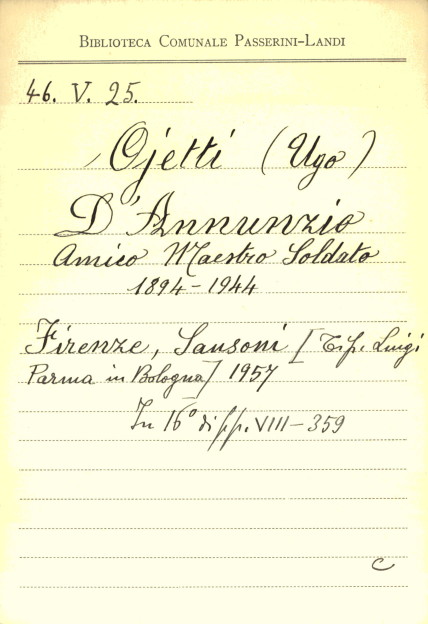 BIBLIOTECA COMUNALE PASSERINI-LANDI
46. V. 25.
Ojetti (Ugo)
D'Annunzio
Amico Maestro Soldato
1894-1944
Firenze, Sansoni [Tip. Luigi
Parma in Bologna] 1957
In 16° di pp. VIII-359
C